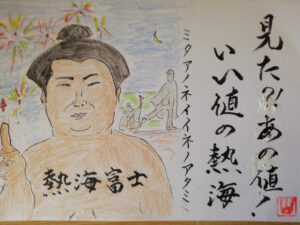 見た?!あの値!
いい値の熱海
ミタアノネイイネノアタミ
熱海富士